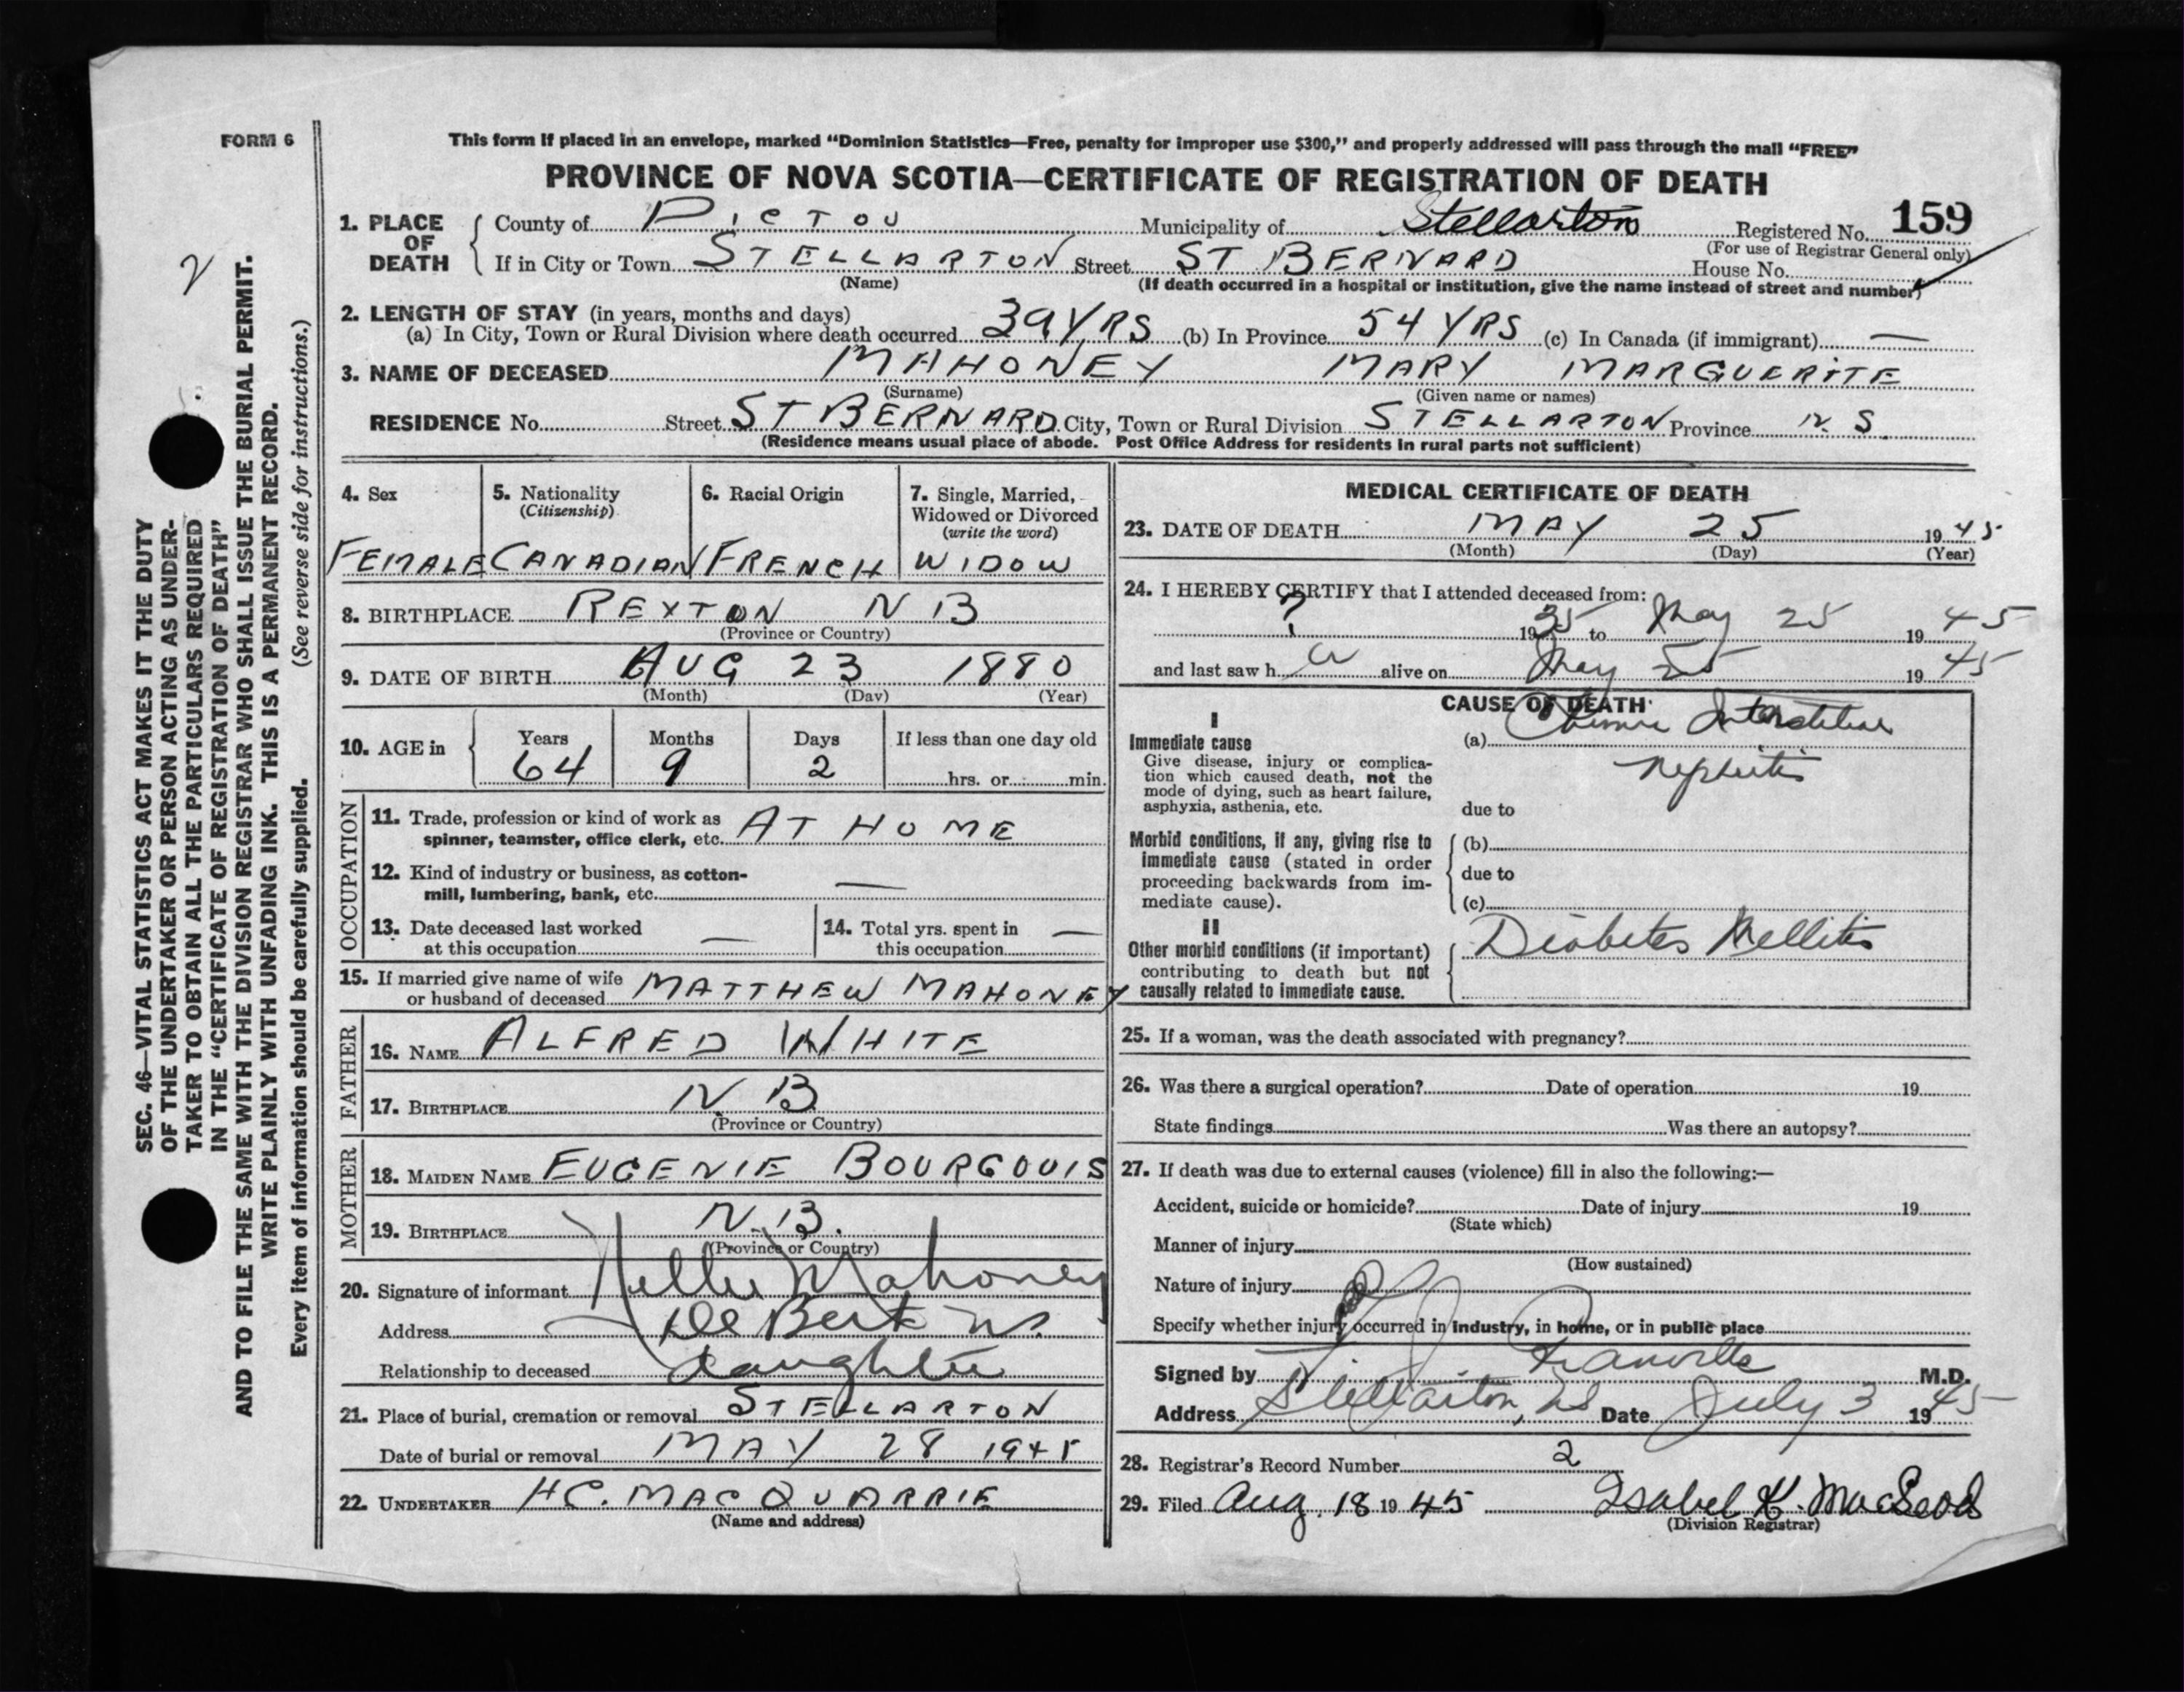 FORM 6
This form if placed in an envelope, marked “Dominion Statistics—Free, penalty for improper use $300,” and properly addressed will pass through the mail “FREE”
PROVINCE OF NOVA SCOTIA—CERTIFICATE OF REGISTRATION OF DEATH
159
1. PLACE OF DEATH
County of PICTOU Municipality of Stellarton Registered No.
(For use of Registrar General only)
If in City or Town STELLARTON Street ST BERNARD House No.
(Name) (If death occurred in a hospital or institution, give the name instead of street and number)
2. LENGTH OF STAY (in years, months and days)
(a) In City, Town or Rural Division where death occurred 39 YRS (b) In Province 54 YRS (c) In Canada (if immigrant) —
3. NAME OF DECEASED MAHONEY MARY MARGUERITE
(Surname) (Given name or names)
RESIDENCE No. Street ST BERNARD City, Town or Rural Division STELLARTON Province N. S.
(Residence means usual place of abode. Post Office Address for residents in rural parts not sufficient)
4. Sex
FEMALE
5. Nationality
(Citizenship)
CANADIAN
6. Racial Origin
FRENCH
7. Single, Married,
Widowed or Divorced
(write the word)
WIDOW
8. BIRTHPLACE REXTON N B
(Province or Country)
9. DATE OF BIRTH AUG 23 1880
(Month) (Day) (Year)
10. AGE in
Years Months Days If less than one day old
64 9 2 hrs. or min.
OCCUPATION
11. Trade, profession or kind of work as
spinner, teamster, office clerk, etc. AT HOME
12. Kind of industry or business, as cotton-
mill, lumbering, bank, etc. —
13. Date deceased last worked
at this occupation —
14. Total yrs. spent in
this occupation —
15. If married give name of wife
or husband of deceased MATTHEW MAHONEY
FATHER
16. NAME ALFRED WHITE
17. BIRTHPLACE N. B.
(Province or Country)
MOTHER
18. MAIDEN NAME EUGENIE BOURGOUIS
19. BIRTHPLACE N. B.
(Province or Country)
20. Signature of informant Nellie Mahoney
Address De Bert N.S.
Relationship to deceased daughter
21. Place of burial, cremation or removal STELLARTON
Date of burial or removal MAY 28 1945
22. UNDERTAKER H C. MACQUARRIE
(Name and address)
MEDICAL CERTIFICATE OF DEATH
23. DATE OF DEATH MAY 25 1945
(Month) (Day) (Year)
24. I HEREBY CERTIFY that I attended deceased from:
? 1935 to May 25 1945
and last saw h er alive on May 25 1945
CAUSE OF DEATH
I
Immediate cause
Give disease, injury or complica-
tion which caused death, not the
mode of dying, such as heart failure,
asphyxia, asthenia, etc.
(a) Chronic Interstitial
Nephritis
due to
Morbid conditions, if any, giving rise to
immediate cause (stated in order
proceeding backwards from im-
mediate cause).
(b)
due to
(c)
II
Other morbid conditions (if important)
contributing to death but not
causally related to immediate cause.
Diabetes Mellitis
25. If a woman, was the death associated with pregnancy?
26. Was there a surgical operation? Date of operation 19
State findings Was there an autopsy?
27. If death was due to external causes (violence) fill in also the following:—
Accident, suicide or homicide? Date of injury 19
(State which)
Manner of injury
(How sustained)
Nature of injury
Specify whether injury occurred in industry, in home, or in public place
Signed by Granville M.D.
Address Stellarton, NS Date July 3 1945
28. Registrar's Record Number 2
29. Filed Aug. 18 1945 Isabel K. MacLeod
(Division Registrar)
2
SEC. 46—VITAL STATISTICS ACT MAKES IT THE DUTY
OF THE UNDERTAKER OR PERSON ACTING AS UNDER-
TAKER TO OBTAIN ALL THE PARTICULARS REQUIRED
IN THE “CERTIFICATE OF REGISTRATION OF DEATH”
AND TO FILE THE SAME WITH THE DIVISION REGISTRAR WHO SHALL ISSUE THE BURIAL PERMIT.
WRITE PLAINLY WITH UNFADING INK. THIS IS A PERMANENT RECORD.
Every item of information should be carefully supplied. (See reverse side for instructions.)